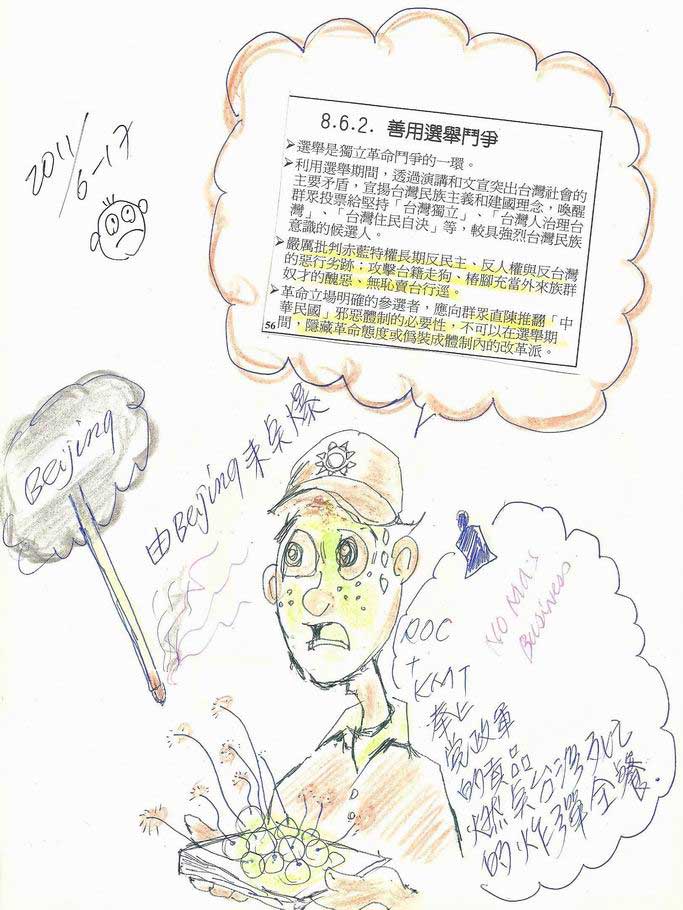 2011/6-17
8.6.2. 善用選舉鬥爭
➢選舉是獨立革命鬥爭的一環。
➢利用選舉期間，透過演講和文宣突出台灣社會的
主要矛盾，宣揚台灣民族主義和建國理念，喚醒
群眾投票給堅持「台灣獨立」、「台灣人治理台
灣」、「台灣住民自決」等，較具強烈台灣民族
意識的候選人。
➢嚴厲批判赤藍特權長期反民主、反人權與反台灣
的惡行劣跡；攻擊台籍走狗、樁腳充當外來族群
奴才的醜惡、無恥賣台行逕。
➢革命立場明確的參選者，應向群眾直陳推翻「中
華民國」邪惡體制的必要性，不可以在選舉期
間，隱藏革命態度或偽裝成體制內的改革派。
56
Beijing
由Beijing來点爆
NO MA's
Business
ROC
+
KMT
奉上
党政軍
的貢品
燃点台湾死亡
的炸彈全餐.